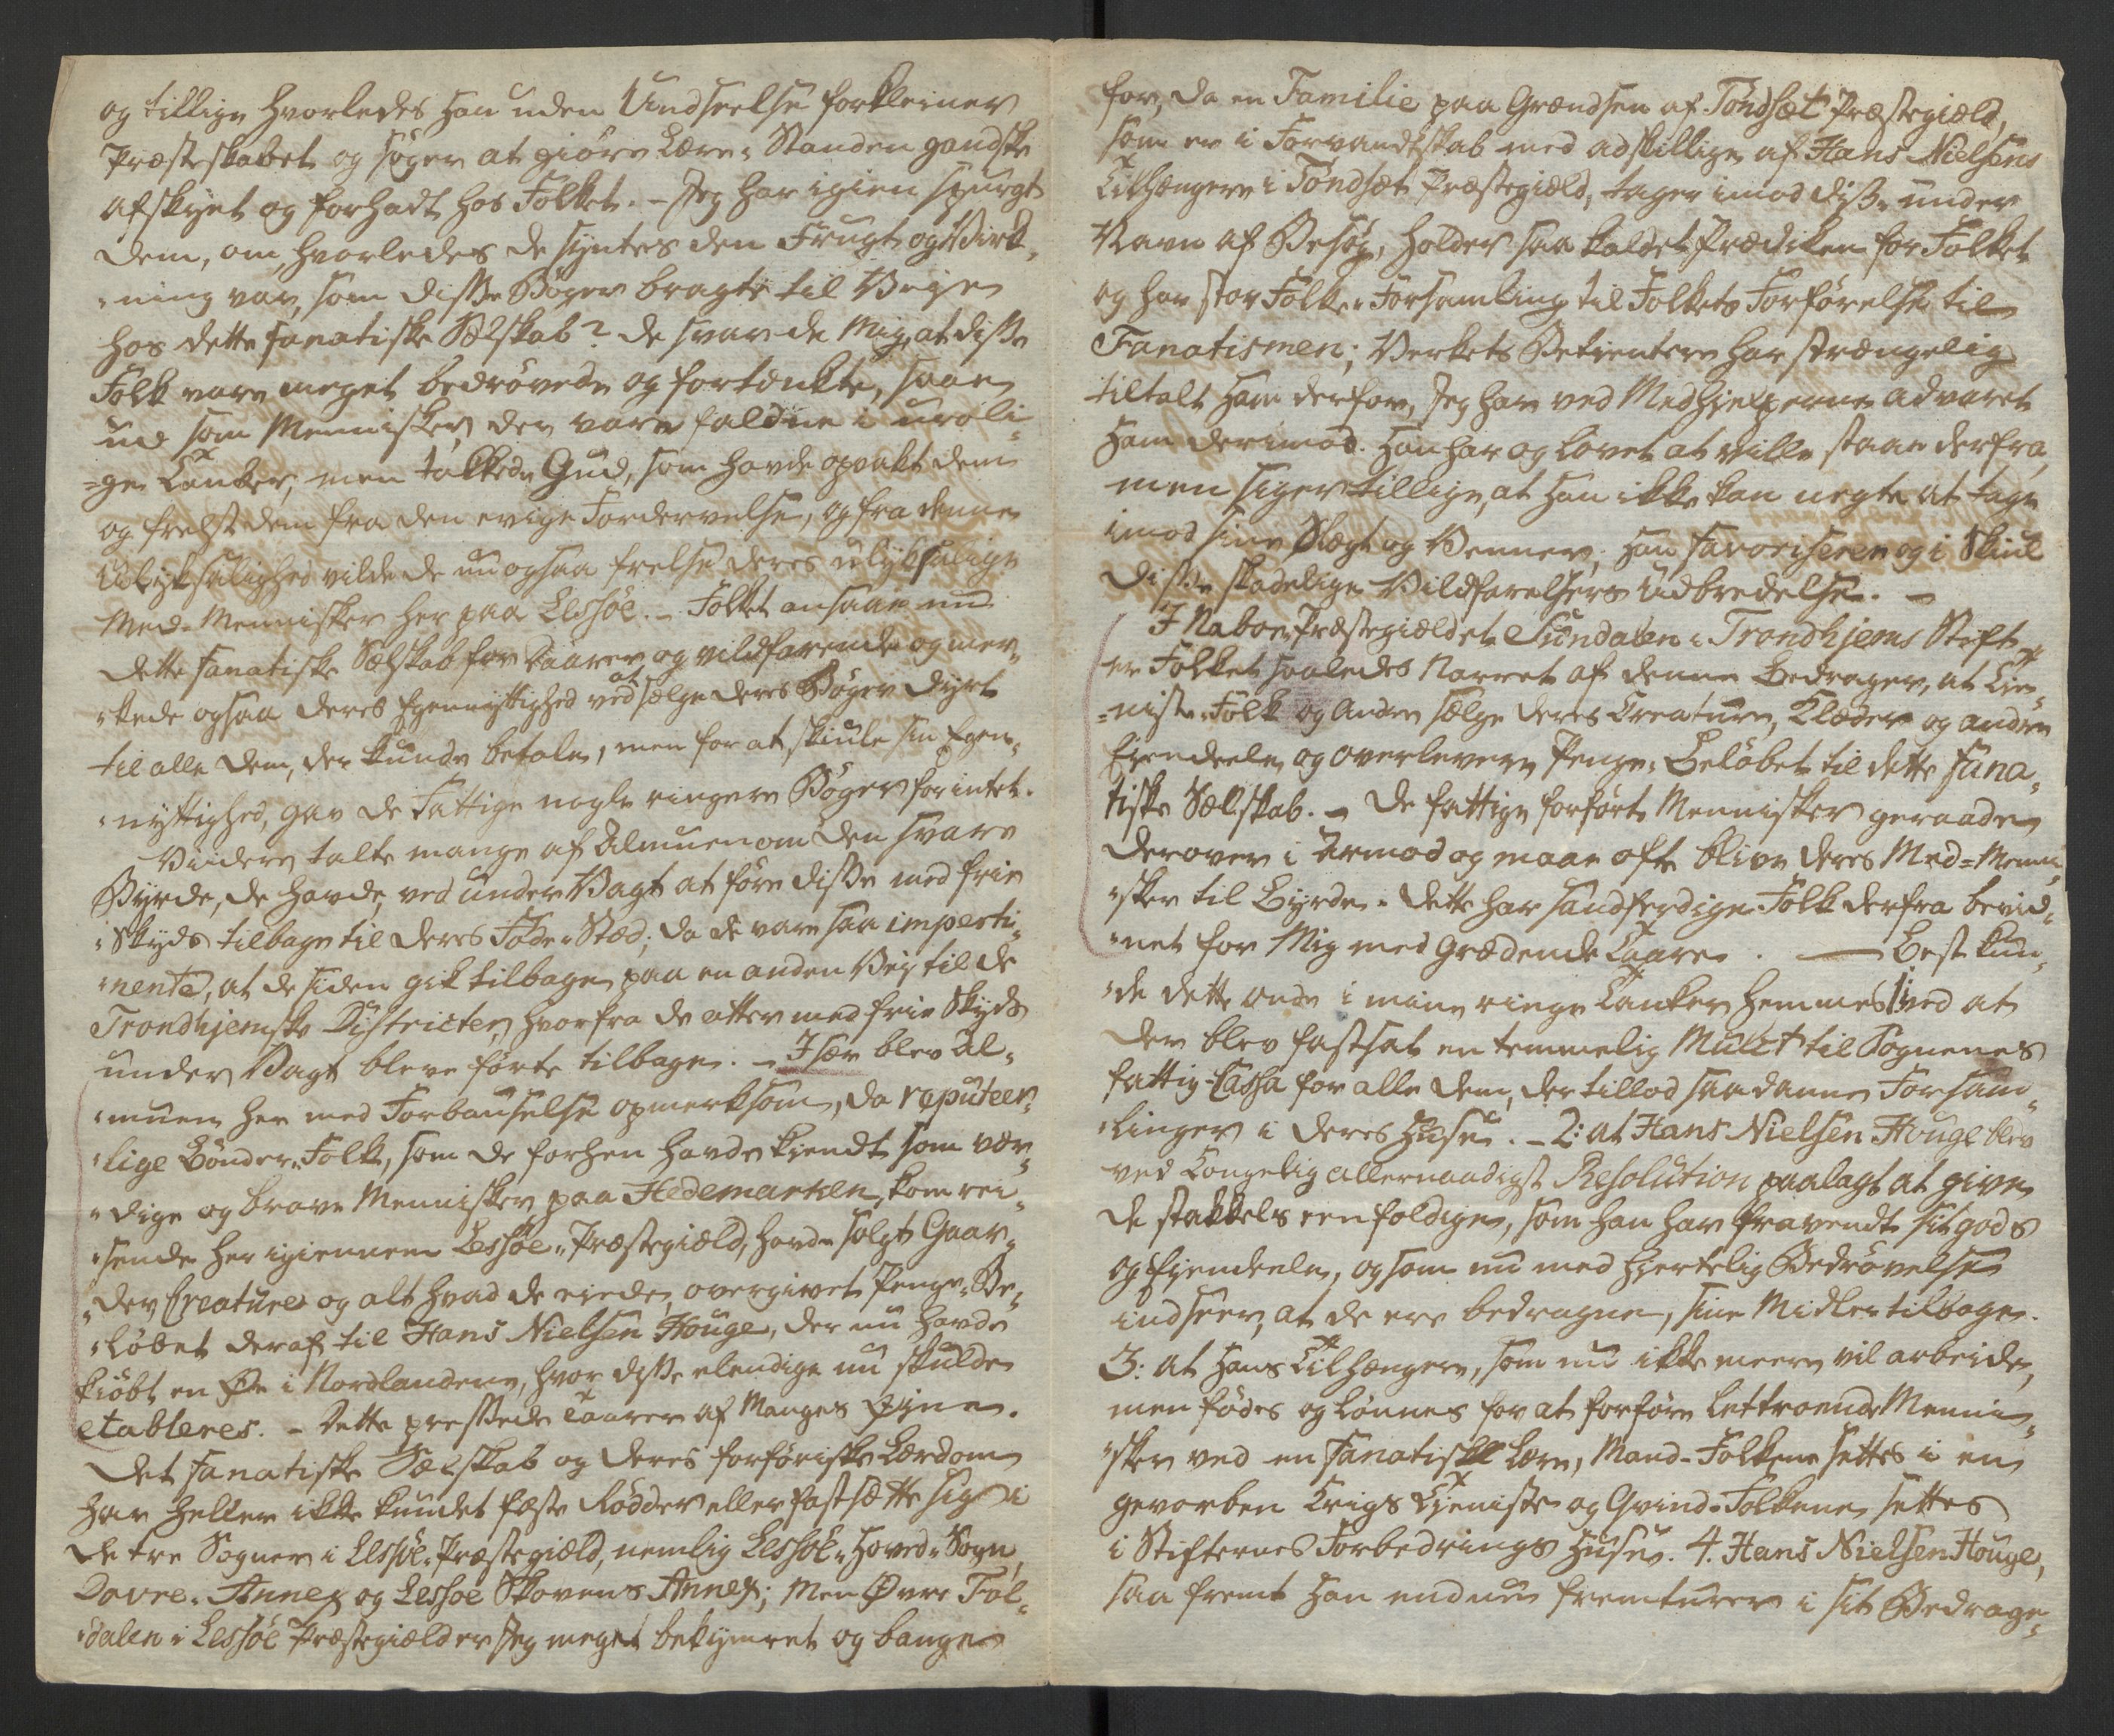 og tillige hvorledes han uden Undseelse forkleiner
Præsteskabet og søger at giøre Lære-Standen gandske
afskyet og forhadt hos Folket. - Jeg har igien spurgt
dem, om, hvorledes de syntes den Frugt og Virk-
-ning var, som disse Bøger bragte til Veye
hos dette fanatiske Selskab? de svarede Mig, at disse
Folk vare meget bedrøvede og fortænkte, saae
ud som Mennisker, der vare faldne i uroli-
-ge Tanker, men takkede Gud, som havde opvakt dem
og frelst dem fra den evige Fordervelse, og fra denne
Ulyksalighed vilde de nu ogsaa frelse deres ulyksalige
Med-Mennisker her paa Lessøe. - Folket ansaae nu
dette fanatiske Selskab for Daarer og vildfarende og mer-
-kede ogsaa deres Egennyttighed ved at sælge deres Bøger dyrt
til alle dem, der kunde betale, men for at skiule sin Egen-
-nyttighed, gav de Fattige nogle ringere Bøger for intet.
Videre talte mange af Almuen om den svare
Byrde, de havde, ved under Vagt at føre disse med frie
Skyds tilbage til deres Føde-Stæd; da de vare saa imperti-
-nente, at de siden gik tilbage paa en anden Vey til de
Trondhjemske Districter, hvorfra de atter med frie Skyds
under Vagt bleve førte tilbage. - Især blev Al-
-muen her med Forbauselse opmerksom, da reputeer-
-lige Bønder-Folk, som de forhen havde kiendt som vær-
-dige og brave Mennisker paa Hedemarken, kom rei-
-sende her igiennem Lessøe-Præstegield, havde solgt Gaar-
-der, Creature og alt hvad de eiede, overgivet Penge-Be-
-løbet deraf til Hans Nielsen Houge, der nu havde
kiøbt en Øe i Nordlandene, hvor disse elendige nu skulde
etableres. - Dette pressede Taarer af Manges Øyne.
Det fanatiske Selskab og deres forføriske Lærdom
har heller ikke kundet fæste Rødder eller fastsætte sig i
de tre Sogner i Lessøe-Præstegield, nemlig Lessøe-Hoved-Sogn,
Dovre-Annex og Lessøe Skovens Annex; Men Øvre Fol-
-dalen i Lessøe Præstegield er Jeg meget bekymret og bange
for, da en Familie paa Grændsen af Tøndsæt Præstegield,
som er i Forvandtskab med adskillige af Hans Nielsens
Tilhængere i Tøndsæt Præstegield, tager imod disse under
Navn af Besøg, holder saa kaldet Prædiken for Folket
og har stor Folke-Forsamling til Folkets Forførelse til
Fanatismen; Verkets Betientere har strængelig
tiltalt ham derfor, Jeg har ved Medhielperne advaret
ham derimod. Han har og lovet at ville staae derfra,
men siger tillige, at han ikke kan negte at tage
imod sine Slegt og Venner; han favoriserer og i Skiul
disse skadelige Vildfarelsers Udbredelse. -
I Naboe-Præstegieldet Sundalen i Trondhjems Stift
er Folket saaledes Narret af denne Bedrager, at Tie-
-niste-Folk og Andre sælge deres Creature, Klæder og andre
Eyendeele og overlevere Penge-Beløbet til dette fana-
tiske Selskab. - De fattige forførte Mennisker geraade
derover i Armod og maae ofte blive deres Med-Menni-
-sker til Byrde. Dette har sandferdige Folk derfra bevid-
-net for Mig med grædende Taare. - Best kun-
-de dette onde i mine ringe Tanker hemmes 1: ved at
der blev fastsat en temmelig Mulct til Sognenes
fattig-Cassa for alle dem, der tillod saadanne Forsam-
-linger i deres Huse. - 2: at Hans Nielsen Houge blev
ved Kongelig allernaadigst Resolution paalagt at give
de stakkels eenfoldige, som han har fravendt sit gods
og Eyendeele, og som nu med hiertelig Bedrøvelse
indseer, at de ere bedragne, sine Midler tilbage.
3: at hans Tilhængere, som nu ikke meere vil arbeide,
men fødes og lønnes for at forføre lettroende Menni-
-sker ved en fanatisk Lære, Mand-Folkene settes i en
gevorben Krigs Tieniste og Qvind-Folkene settes
i Stifternes Forbedrings Huse. 4. Hans Nielsen Houge,
saa fremt han endnu fremturer i sit Bedrage-